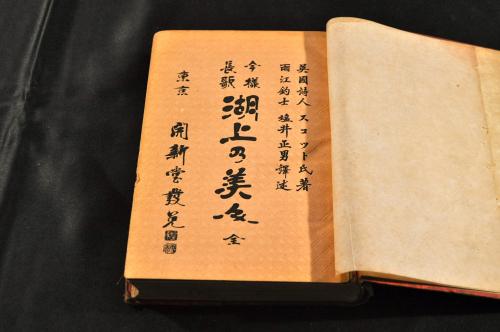 英國詩人 スコット氏著
雨江釣士 塩井正男譯述
今様
長歌
湖上乃美人 全
東京 開新堂發兌